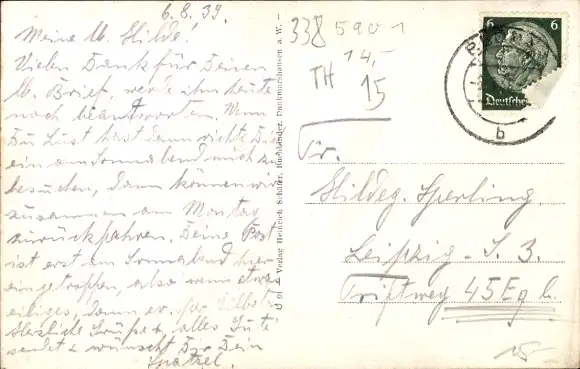 6.8.39.
Meine l. Hilde!
Vielen Dank für Deinen
l. Brief, werde ihn heute
noch beantworten. Wenn
Du Lust hast dann richte Dir
ein am Sonnabend mich zu
besuchen, dann können wir
zusammen am Montag
zurückfahren. Deine Post
ist erst am Sonnabend hier
eingetroffen, also wenn etwas
eiliges, dann er. per Eilbot.
Herzliche Grüße & alles Gute
sendet & wünscht Dir Dein
Verlag Heinrich Schäfer, Buchhändler, Dankmarshausen a. W.
338 5901
14,-
TH 15
6 6
Deutsches
b
Fr.
Hildeg. Sperling.
Leipzig - S. 3.
Triftweg 45 Eg l.
15,-